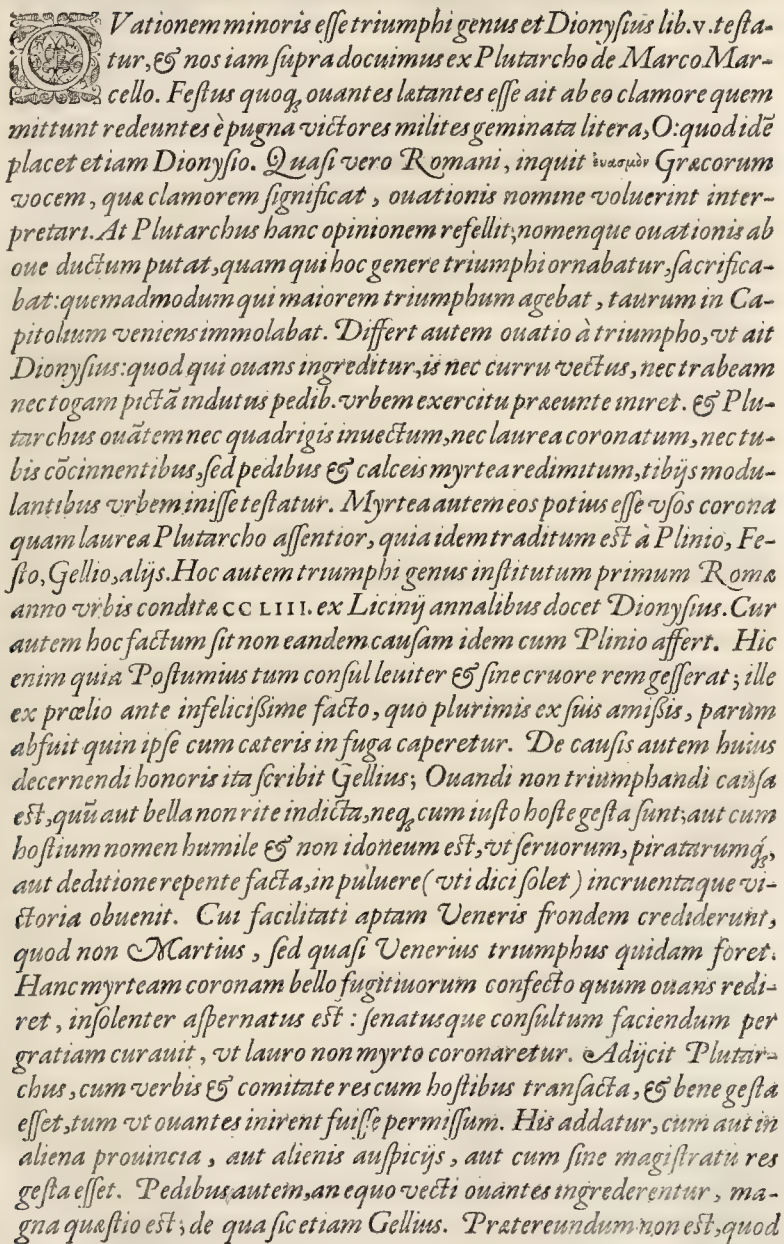 OVationem minoris esse triumphi genus et Dionysius lib. v. testa-
tur, & nos iam supra docuimus ex Plutarcho de Marco Mar-
cello. Festus quoq; ouantes lætantes esse ait ab eo clamore quem
mittunt redeuntes è pugna victores milites geminata litera, O: quod idē
placet etiam Dionysio. Quasi vero Romani, inquit ἐυασμὸν Græcorum
vocem, quæ clamorem significat, ouationis nomine voluerint inter-
pretari. At Plutarchus hanc opinionem refellit; nomenque ouationis ab
oue ductum putat, quam qui hoc genere triumphi ornabatur, sacrifica-
bat: quemadmodum qui maiorem triumphum agebat, taurum in Ca-
pitolium veniens immolabat. Differt autem ouatio à triumpho, vt ait
Dionysius: quod qui ouans ingreditur, is nec curru vectus, nec trabeam
nec togam pictā indutus pedib. vrbem exercitu præeunte iniret. & Plu-
tarchus ouātem nec quadrigis inuectum, nec laurea coronatum, nec tu-
bis cōcinnentibus, sed pedibus & calceis myrtea redimitum, tibijs modu-
lantibus vrbem inisse testatur. Myrtea autem eos potius esse vsos corona
quam laurea Plutarcho assentior, quia idem traditum est à Plinio, Fe-
sto, Gellio, alijs. Hoc autem triumphi genus institutum primum Romæ
anno vrbis conditæ CCLIII. ex Licinij annalibus docet Dionysius. Cur
autem hoc factum sit non eandem causam idem cum Plinio affert. Hic
enim quia Postumius tum consul leuiter & sine cruore rem gesserat; ille
ex prœlio ante infelicißime facto, quo plurimis ex suis amißis, parum
abfuit quin ipse cum cæteris in fuga caperetur. De causis autem huius
decernendi honoris ita scribit Gellius; Ouandi non triumphandi causa
est, quū aut bella non rite indicta, neq; cum iusto hoste gesta sunt; aut cum
hostium nomen humile & non idoneum est, vt seruorum, piratarumq́;,
aut deditione repente facta, in puluere (vti dici solet) incruentaque vi-
ctoria obuenit. Cui facilitati aptam Veneris frondem crediderunt,
quod non Martius, sed quasi Venerius triumphus quidam foret.
Hanc myrteam coronam bello fugitiuorum confecto quum ouans redi-
ret, insolenter aspernatus est: senatusque consultum faciendum per
gratiam curauit, vt lauro non myrto coronaretur. Adijcit Plutar-
chus, cum verbis & comitate res cum hostibus transacta, & bene gesta
esset, tum vt ouantes inirent fuisse permissum. His addatur, cum aut in
aliena prouincia, aut alienis auspicijs, aut cum sine magistratu res
gesta esset. Pedibus autem, an equo vecti ouantes ingrederentur, ma-
gna quæstio est; de qua sic etiam Gellius. Prætereundum non est, quod